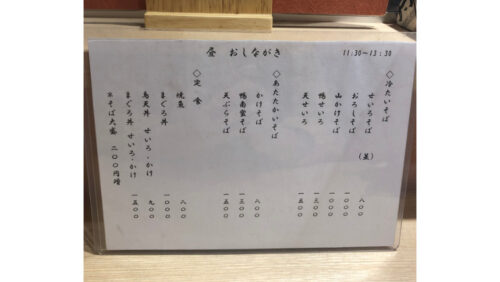 昼 おしながき 11:30〜13:30
◇冷たいそば
せいろそば (並) 八〇〇
おろしそば 一〇〇〇
山かけそば 一〇〇〇
鴨せいろ 一三〇〇
天せいろ 一五〇〇
◇あたたかいそば
かけそば 八〇〇
鴨南蛮そば 一三〇〇
天ぷらそば 一五〇〇
◇定食
焼魚 八〇〇
まぐろ丼 一〇〇〇
鳥天丼 せいろ・かけ 九〇〇
まぐろ丼 せいろ・かけ 一五〇〇
※そば大盛 二〇〇円増